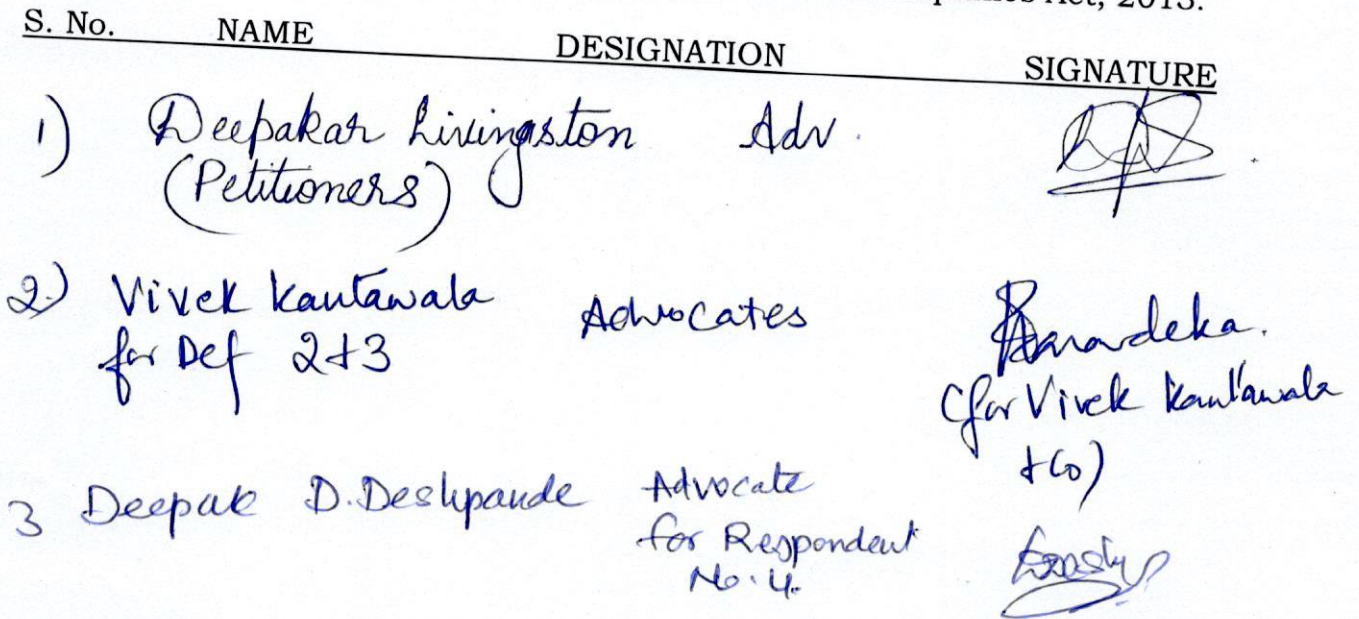 Act, 2013.
S. No. NAME DESIGNATION SIGNATURE
1) Deepakar Livingston Adv.
(Petitioners)
2) Vivek Kantawala Advocates
for Def 2+3
(for Vivek Kantawala
+Co)
3 Deepak D. Deshpande Advocate
for Respondent
No. 4.